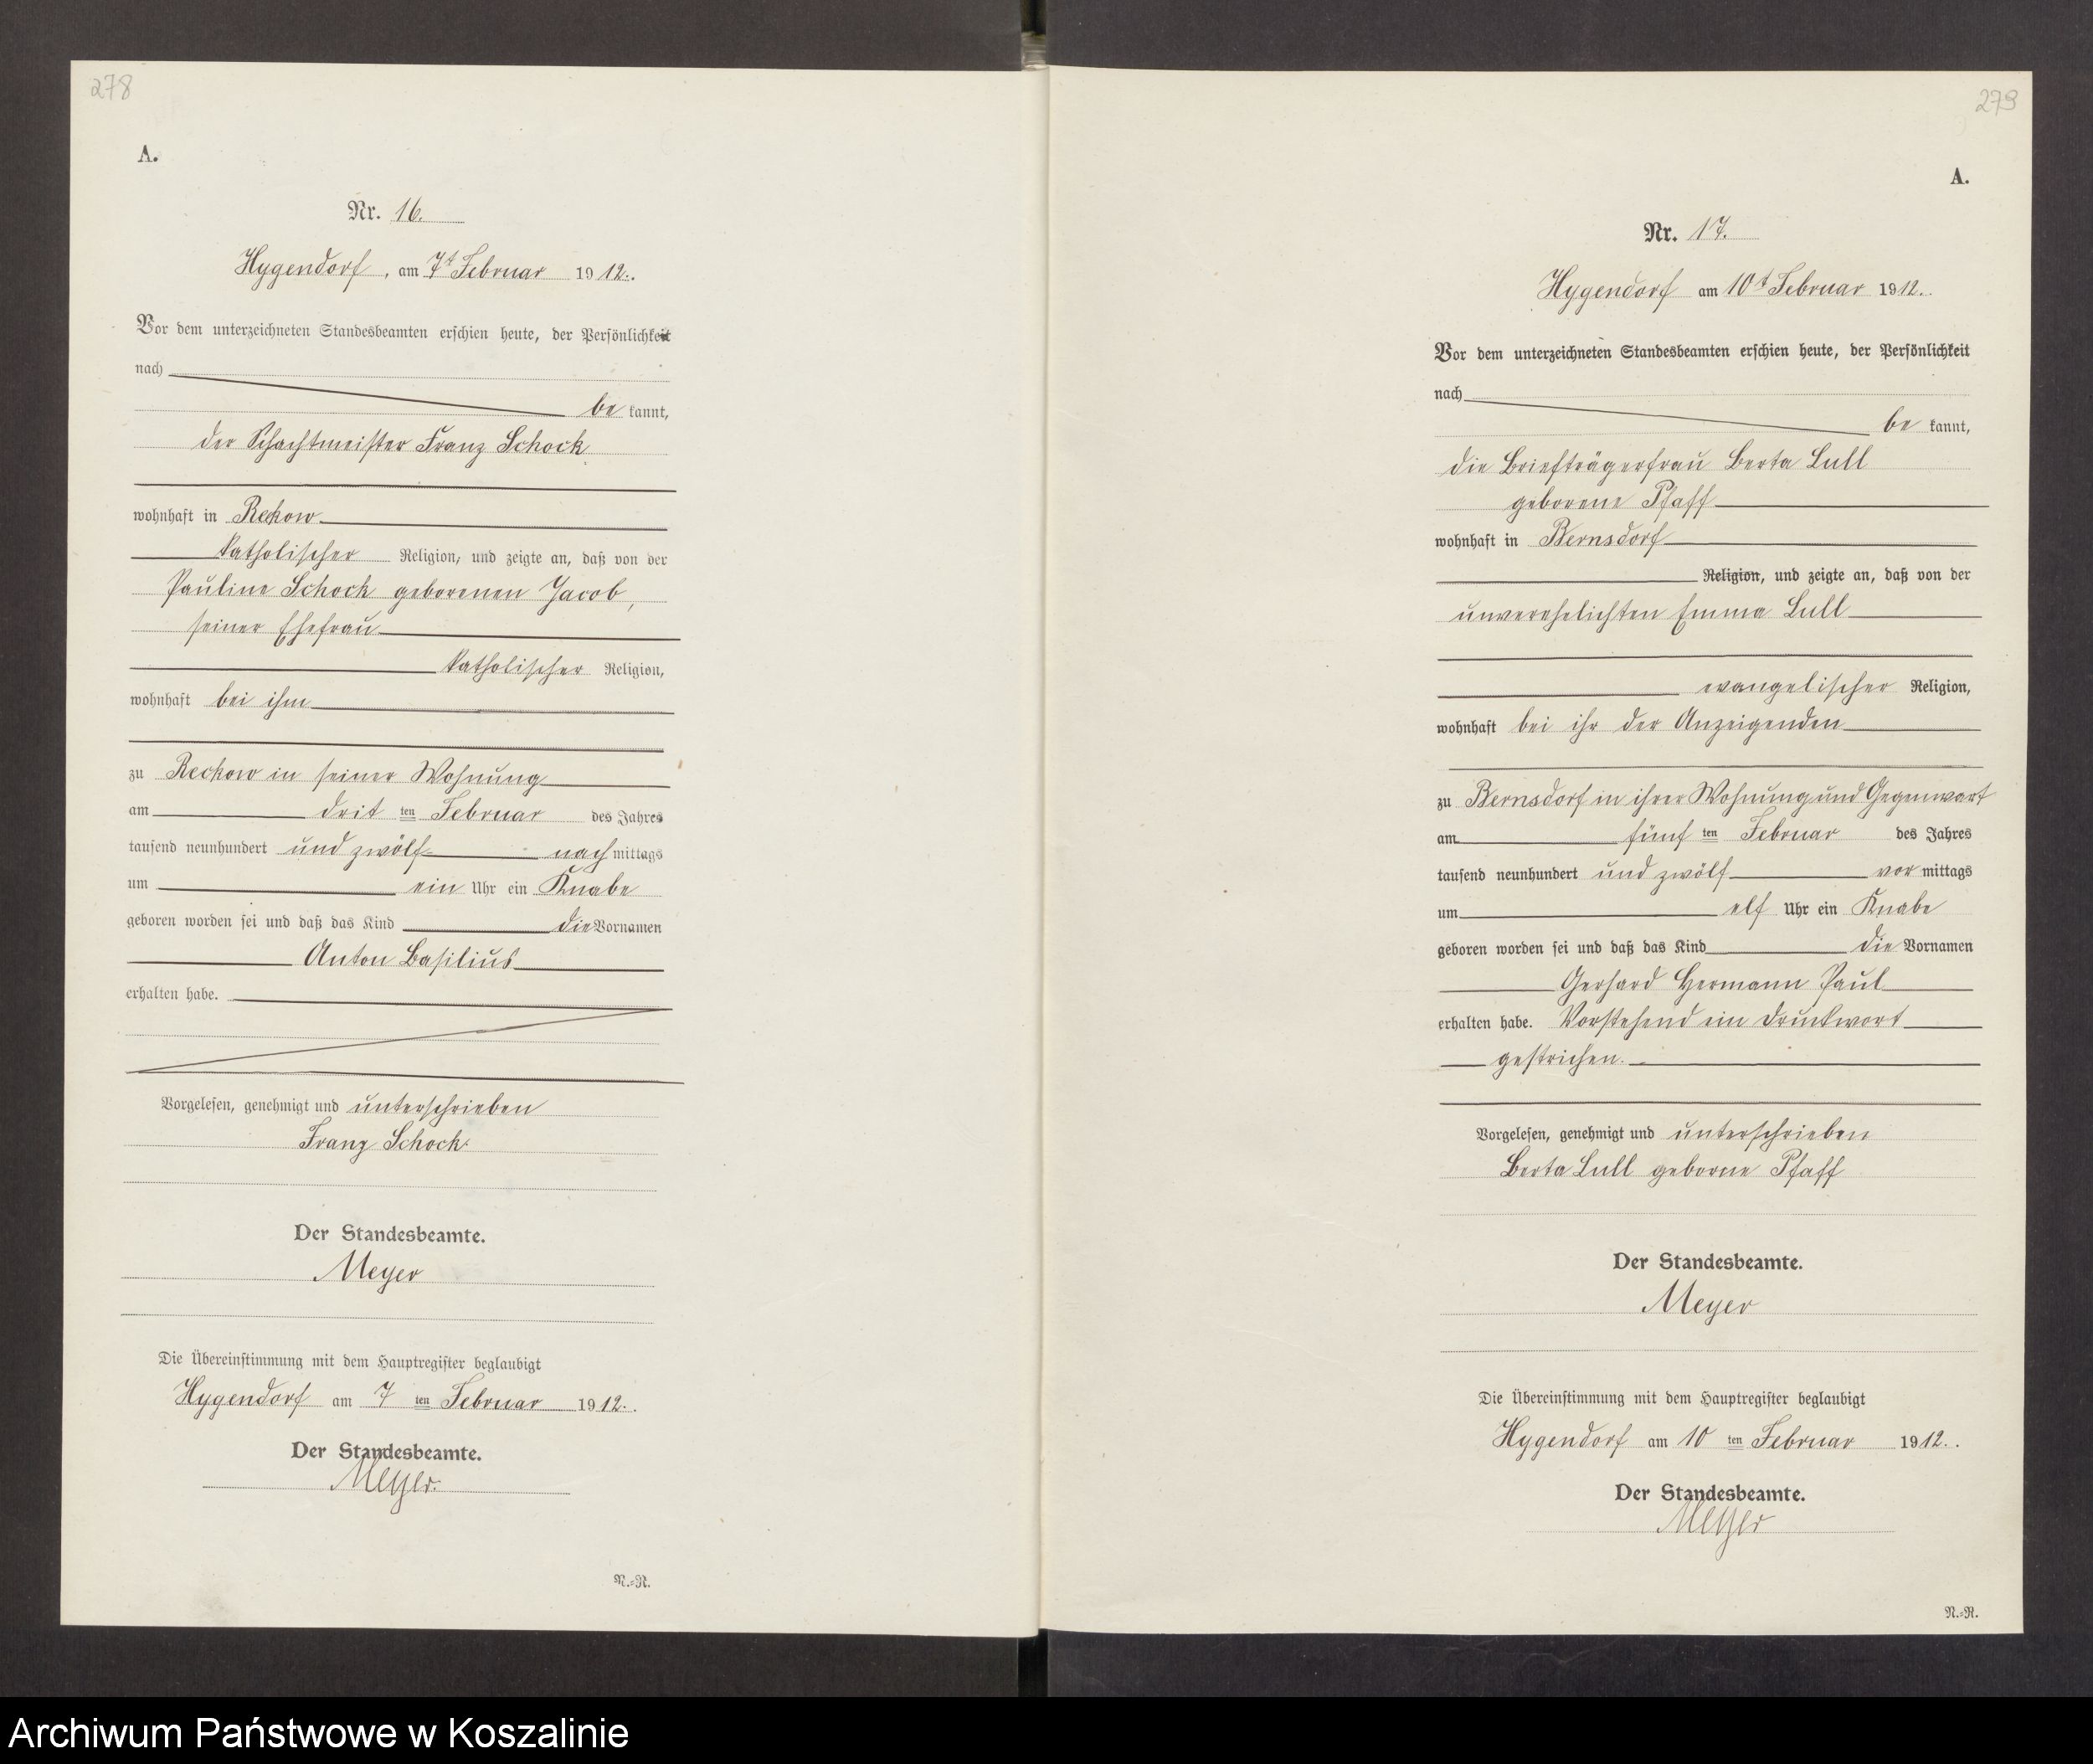 278
A.
Nr. 16.
Hygendorf, am 7t Februar 1912.
Vor dem unterzeichneten Standesbeamten erschien heute, der Persönlichkeit
nach
be kannt,
der Schachtmeister Franz Schock
wohnhaft in Reckow
katholischer Religion, und zeigte an, daß von der
Pauline Schock geborenen Jacob,
seiner Ehefrau
katholischer Religion,
wohnhaft bei ihm
zu Reckow in seiner Wohnung
am drit ten Februar des Jahres
tausend neunhundert und zwölf nach mittags
um ein Uhr ein Knabe
geboren worden sei und daß das Kind die Vornamen
Anton Basilius
erhalten habe.
Vorgelesen, genehmigt und unterschrieben
Franz Schock.
Der Standesbeamte.
Meyer
Die Übereinstimmung mit dem Hauptregister beglaubigt
Hygendorf am 7 ten Februar 1912.
Der Standesbeamte.
Meyer.
N.=R.
279
A.
Nr. 17.
Hygendorf am 10t Februar 1912.
Vor dem unterzeichneten Standesbeamten erschien heute, der Persönlichkeit
nach
be kannt,
die Briefträgerfrau Berta Lull
geborene Pfaff
wohnhaft in Bernsdorf
Religion, und zeigte an, daß von der
unverehelichten Emma Lull
evangelischer Religion,
wohnhaft bei ihr der Anzeigenden
zu Bernsdorf in ihrer Wohnung und Gegenwart
am fünf ten Februar des Jahres
tausend neunhundert und zwölf vor mittags
um elf Uhr ein Knabe
geboren worden sei und daß das Kind die Vornamen
Gerhard Hermann Paul
erhalten habe. Vorstehend ein Druckwort
gestrichen.
Vorgelesen, genehmigt und unterschrieben
Berta Lull geborne Pfaff
Der Standesbeamte.
Meyer
Die Übereinstimmung mit dem Hauptregister beglaubigt
Hygendorf am 10 ten Februar 1912.
Der Standesbeamte.
Meyer
N.=R.
Archiwum Państwowe w Koszalinie